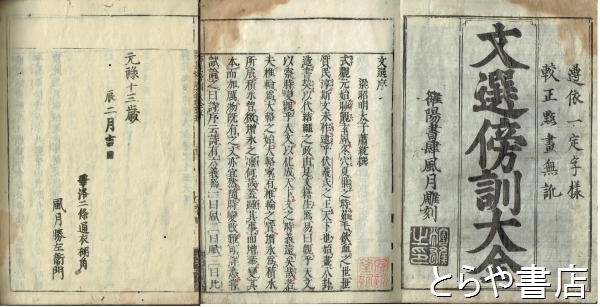 憑依一定字樣
較正點畫無訛
文選傍訓大全
雒陽書肆風月雕刻
文選序
梁昭明太子蕭統撰
式觀元始眇覿玄風冬穴夏巢之時茹毛飲血之世世
質民淳斯文未作逮乎伏羲氏之王天下也始畫八卦
造書契以代結繩之政由是文籍生焉易曰觀乎天文
以察時變觀乎人文以化成天下文之時義遠矣哉若
夫椎輪爲大輅之始大輅寧有椎輪之質增冰爲積水
所成積水曾微增冰之凜何哉蓋踵其事而增華變其
本而加厲物既有之文亦宜然隨時變改難可詳悉嘗
試論之曰詩序云詩有六義焉一曰風二曰賦三曰比
元祿十三歲
辰二月吉日
華洛二條通衣棚角
風月勝左衞門
とらや書店